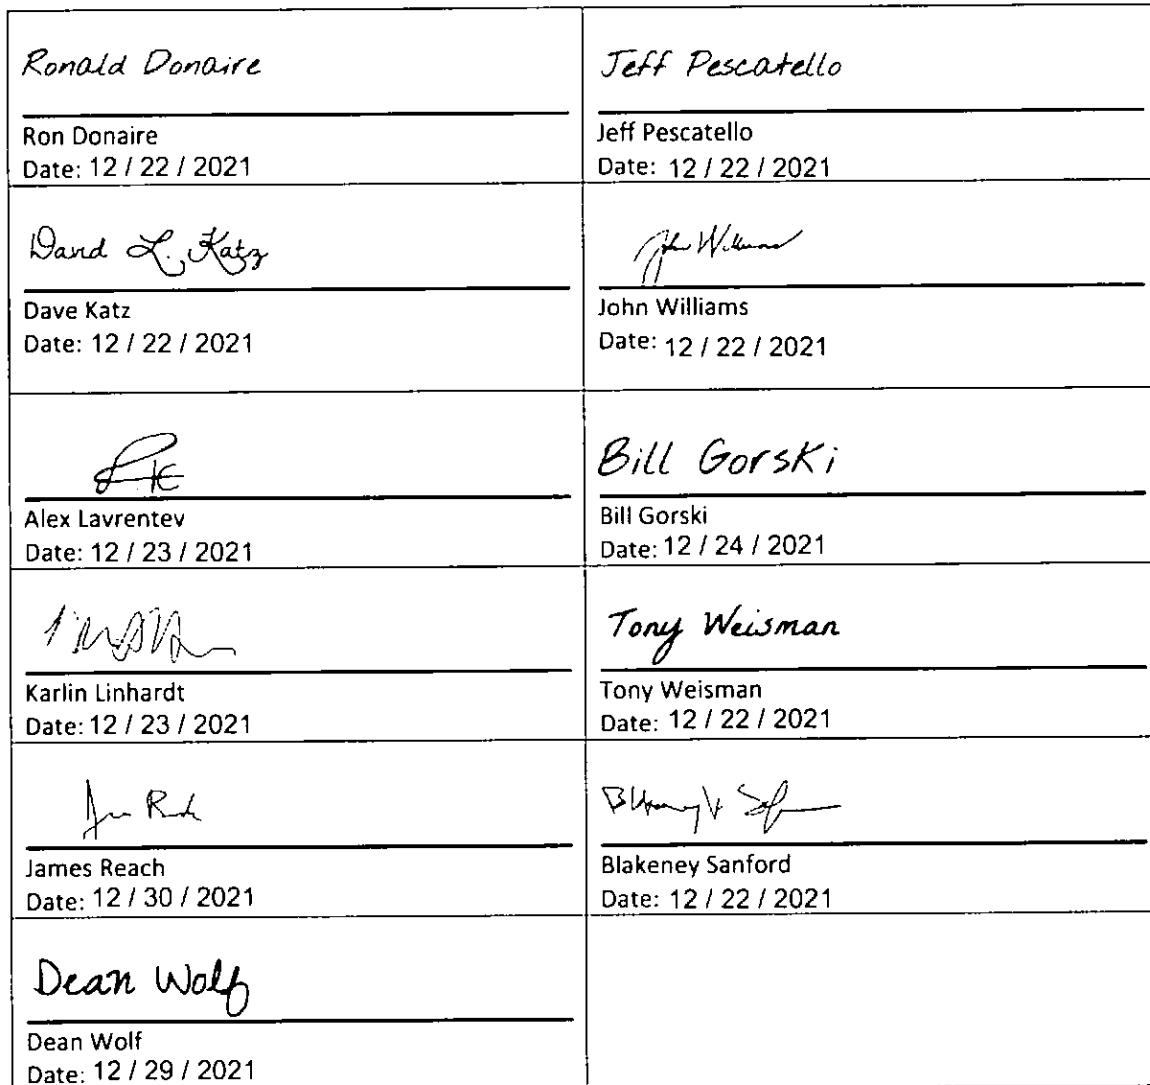 Ronald Donaire
Ron Donaire
Date: 12 / 22 / 2021
Jeff Pescatello
Jeff Pescatello
Date: 12 / 22 / 2021
David L. Katz
Dave Katz
Date: 12 / 22 / 2021
John Williams
John Williams
Date: 12 / 22 / 2021
Alex Lavrentev
Date: 12 / 23 / 2021
Bill Gorski
Bill Gorski
Date: 12 / 24 / 2021
Karlin Linhardt
Date: 12 / 23 / 2021
Tony Weisman
Tony Weisman
Date: 12 / 22 / 2021
James Reach
Date: 12 / 30 / 2021
Blakeney Sanford
Date: 12 / 22 / 2021
Dean Wolf
Dean Wolf
Date: 12 / 29 / 2021